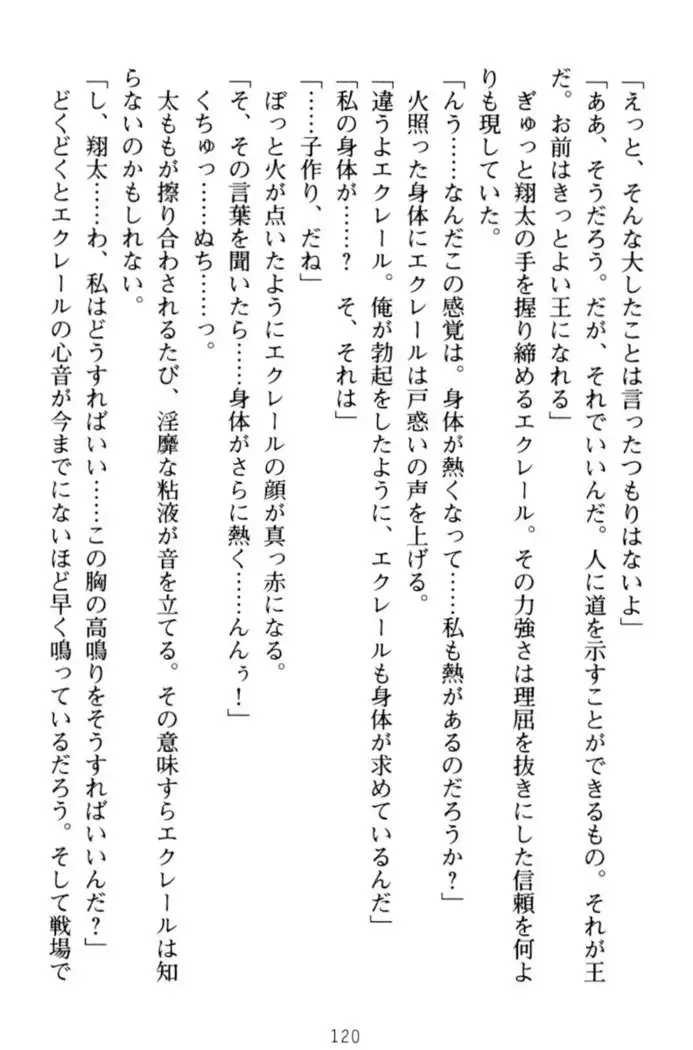 「えっと、そんな大したことは言ったつもりはないよ」
「ああ、そうだろう。だが、それでいいんだ。人に道を示すことができるもの。それが王
だ。お前はきっとよい王になれる」
ぎゅっと翔太の手を握り締めるエクレール。その力強さは理屈を抜きにした信頼を何よ
りも現していた。
「んう……なんだこの感覚は。身体が熱くなって……私も熱があるのだろうか？」
火照った身体にエクレールは戸惑いの声を上げる。
「違うよエクレール。俺が勃起をしたように、エクレールも身体が求めているんだ」
「私の身体が……？　そ、それは」
「……子作り、だね」
ぼっと火が点いたようにエクレールの顔が真っ赤になる。
「そ、その言葉を聞いたら……身体がさらに熱く……んんぅ！」
くちゅっ……ぬち……っ。
太ももが擦り合わされるたび、淫靡な粘液が音を立てる。その意味すらエクレールは知
らないのかもしれない。
「し、翔太……わ、私はどうすればいい……この胸の高鳴りをそうすればいいんだ？」
どくどくとエクレールの心音が今までにないほど早く鳴っているだろう。そして戦場で
120